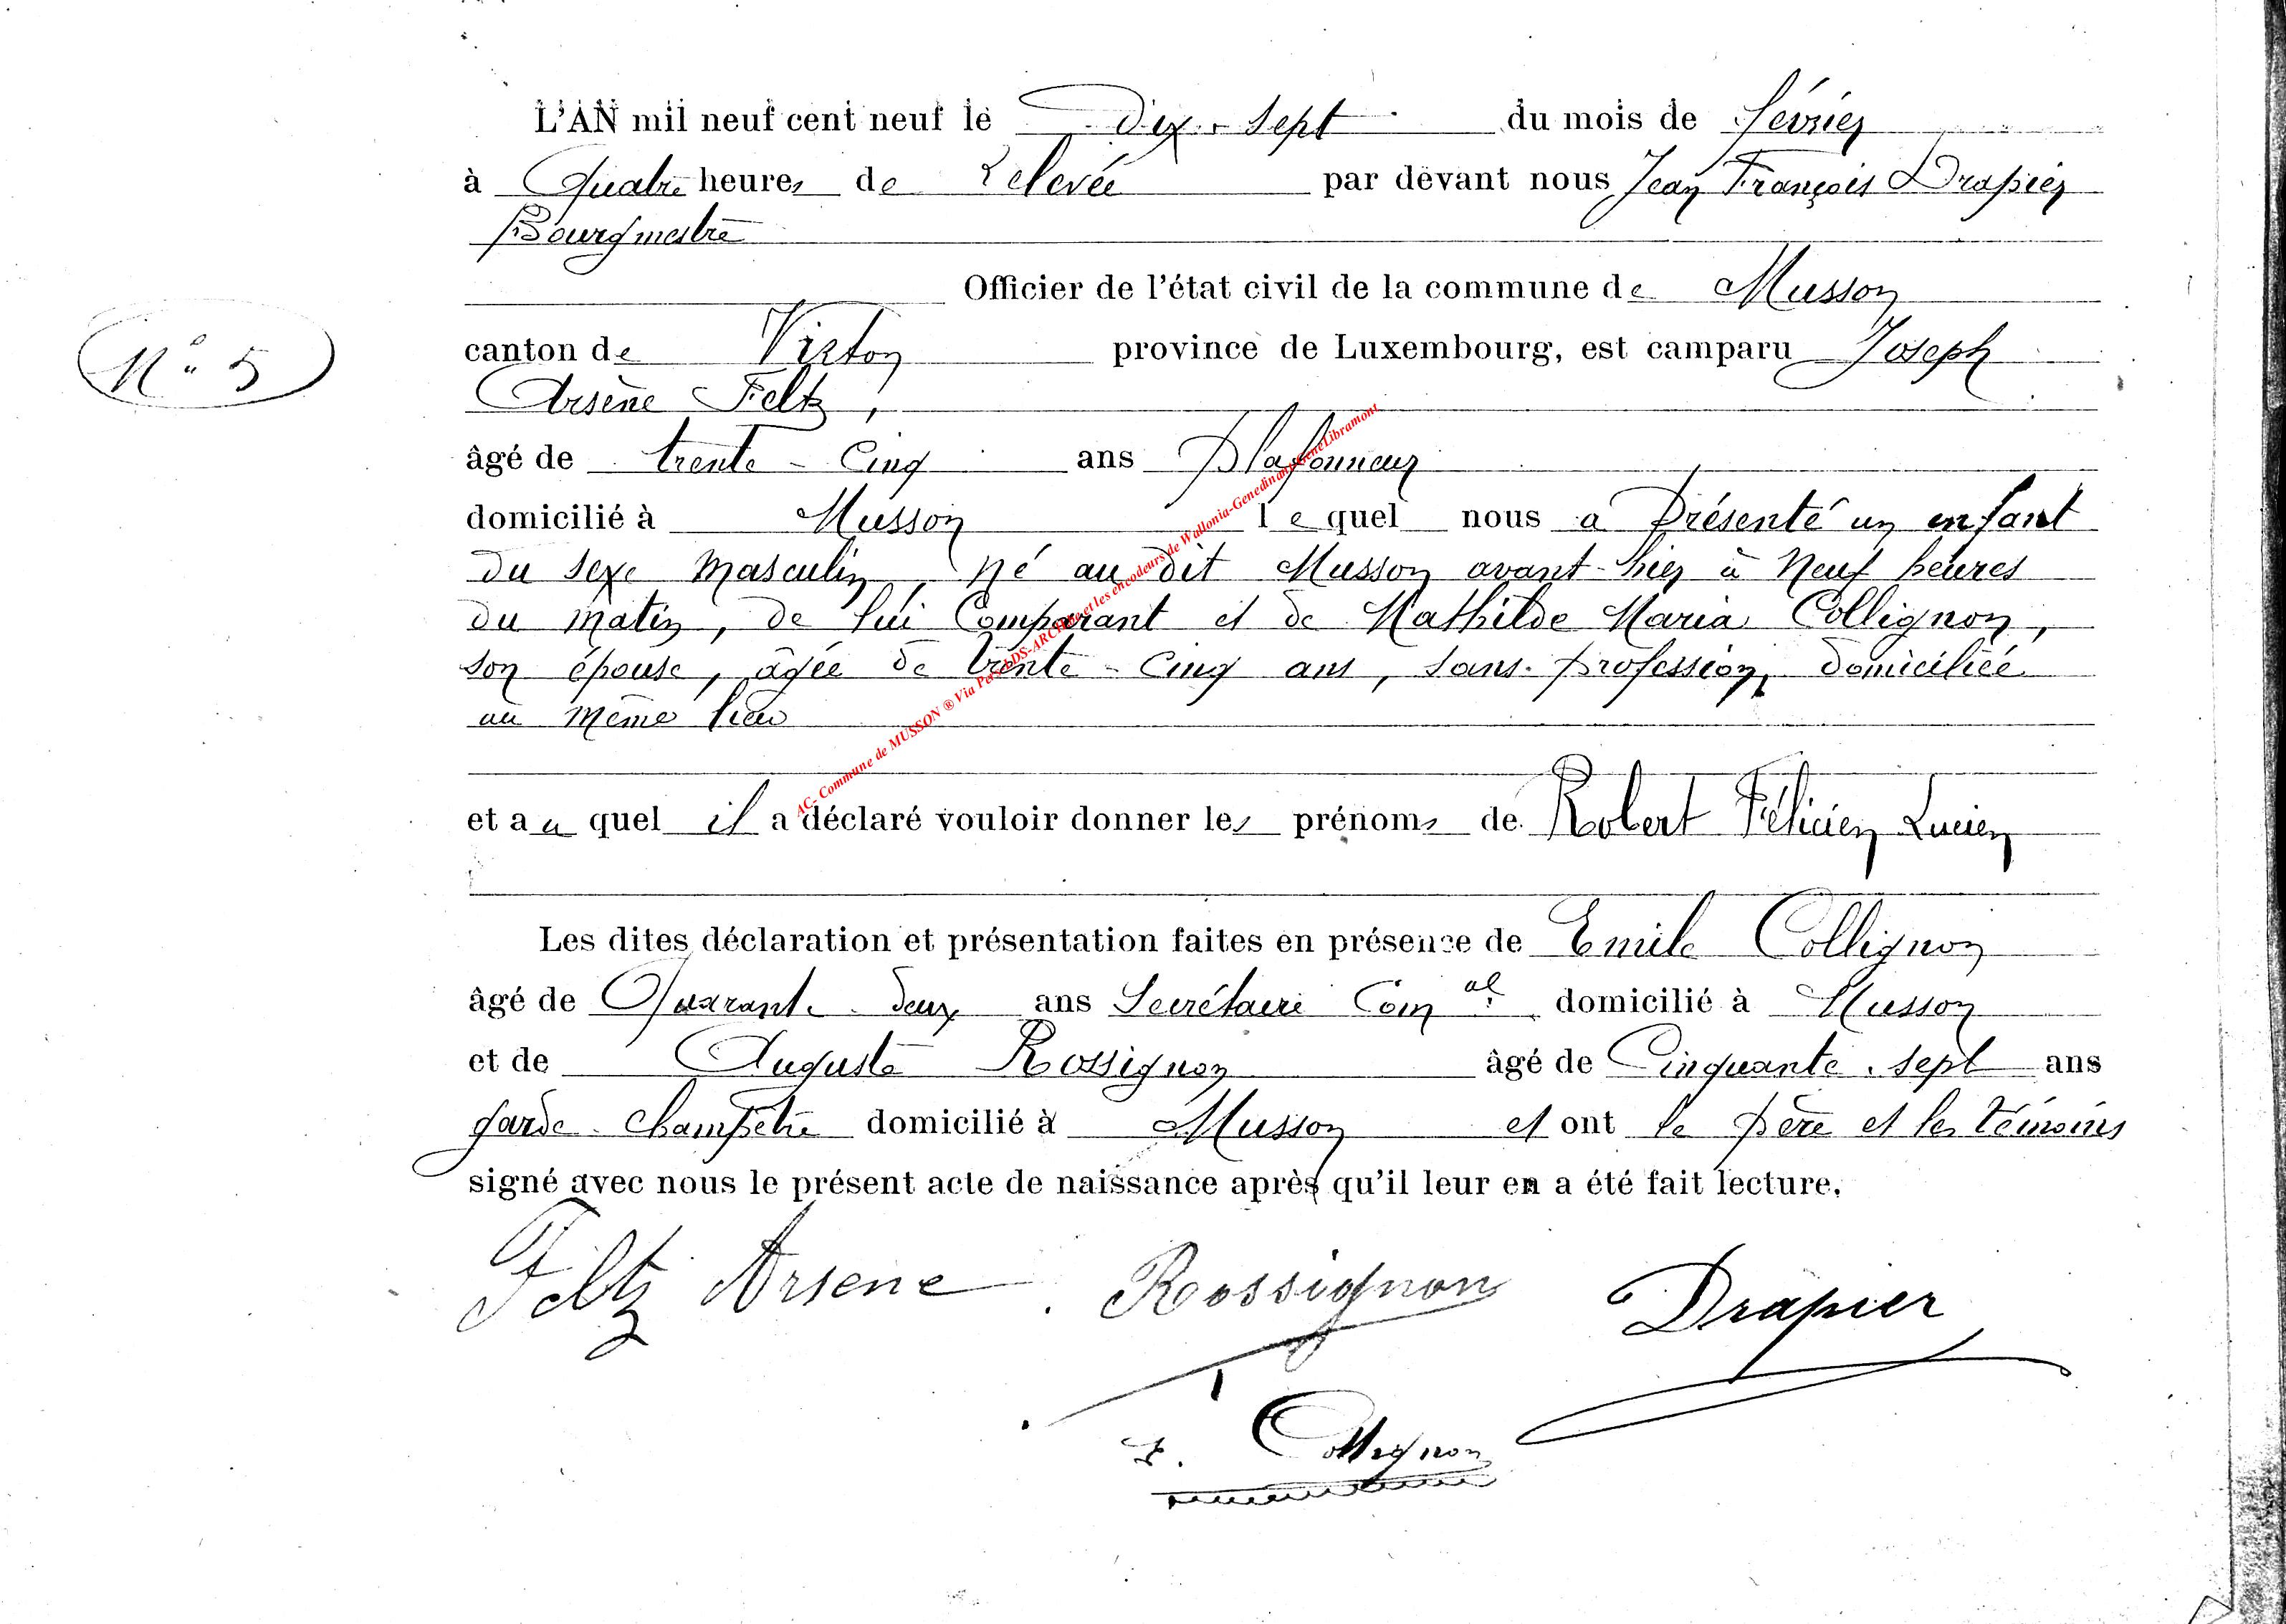 L'AN mil neuf cent neuf le Dix-sept du mois de février
à Quatre heures de Relevée par devant nous Jean François Drapier
Bourgmestre
Officier de l'état civil de la commune de Musson
N° 5
canton de Virton province de Luxembourg, est camparu Joseph
Arsène Feltz,
âgé de trente-Cinq ans Plafonneur
domicilié à Musson lequel nous a Présenté un enfant
du sexe masculin, né au dit Musson avant-hier à Neuf heures
du matin, de lui Comparant et de Mathilde Maria Collignon,
son épouse, âgée de trente-Cinq ans, sans profession, domiciliée
au même lieu
et au quel il a déclaré vouloir donner les prénoms de Robert Félicien Lucien
Les dites déclaration et présentation faites en présence de Emile Collignon
âgé de Quarante-deux ans Secrétaire Comal domicilié à Musson
et de Auguste Rossignon âgé de Cinquante-sept ans
garde-Champêtre domicilié à Musson et ont le père et les témoins
signé avec nous le présent acte de naissance après qu'il leur en a été fait lecture.
Feltz Arsene. Rossignon Drapier
E. Collignon
AC- Commune de MUSSON ® Via Pers LDS-ARCHive et les encodeurs de Wallonia-Genedinant-GeneLibramont